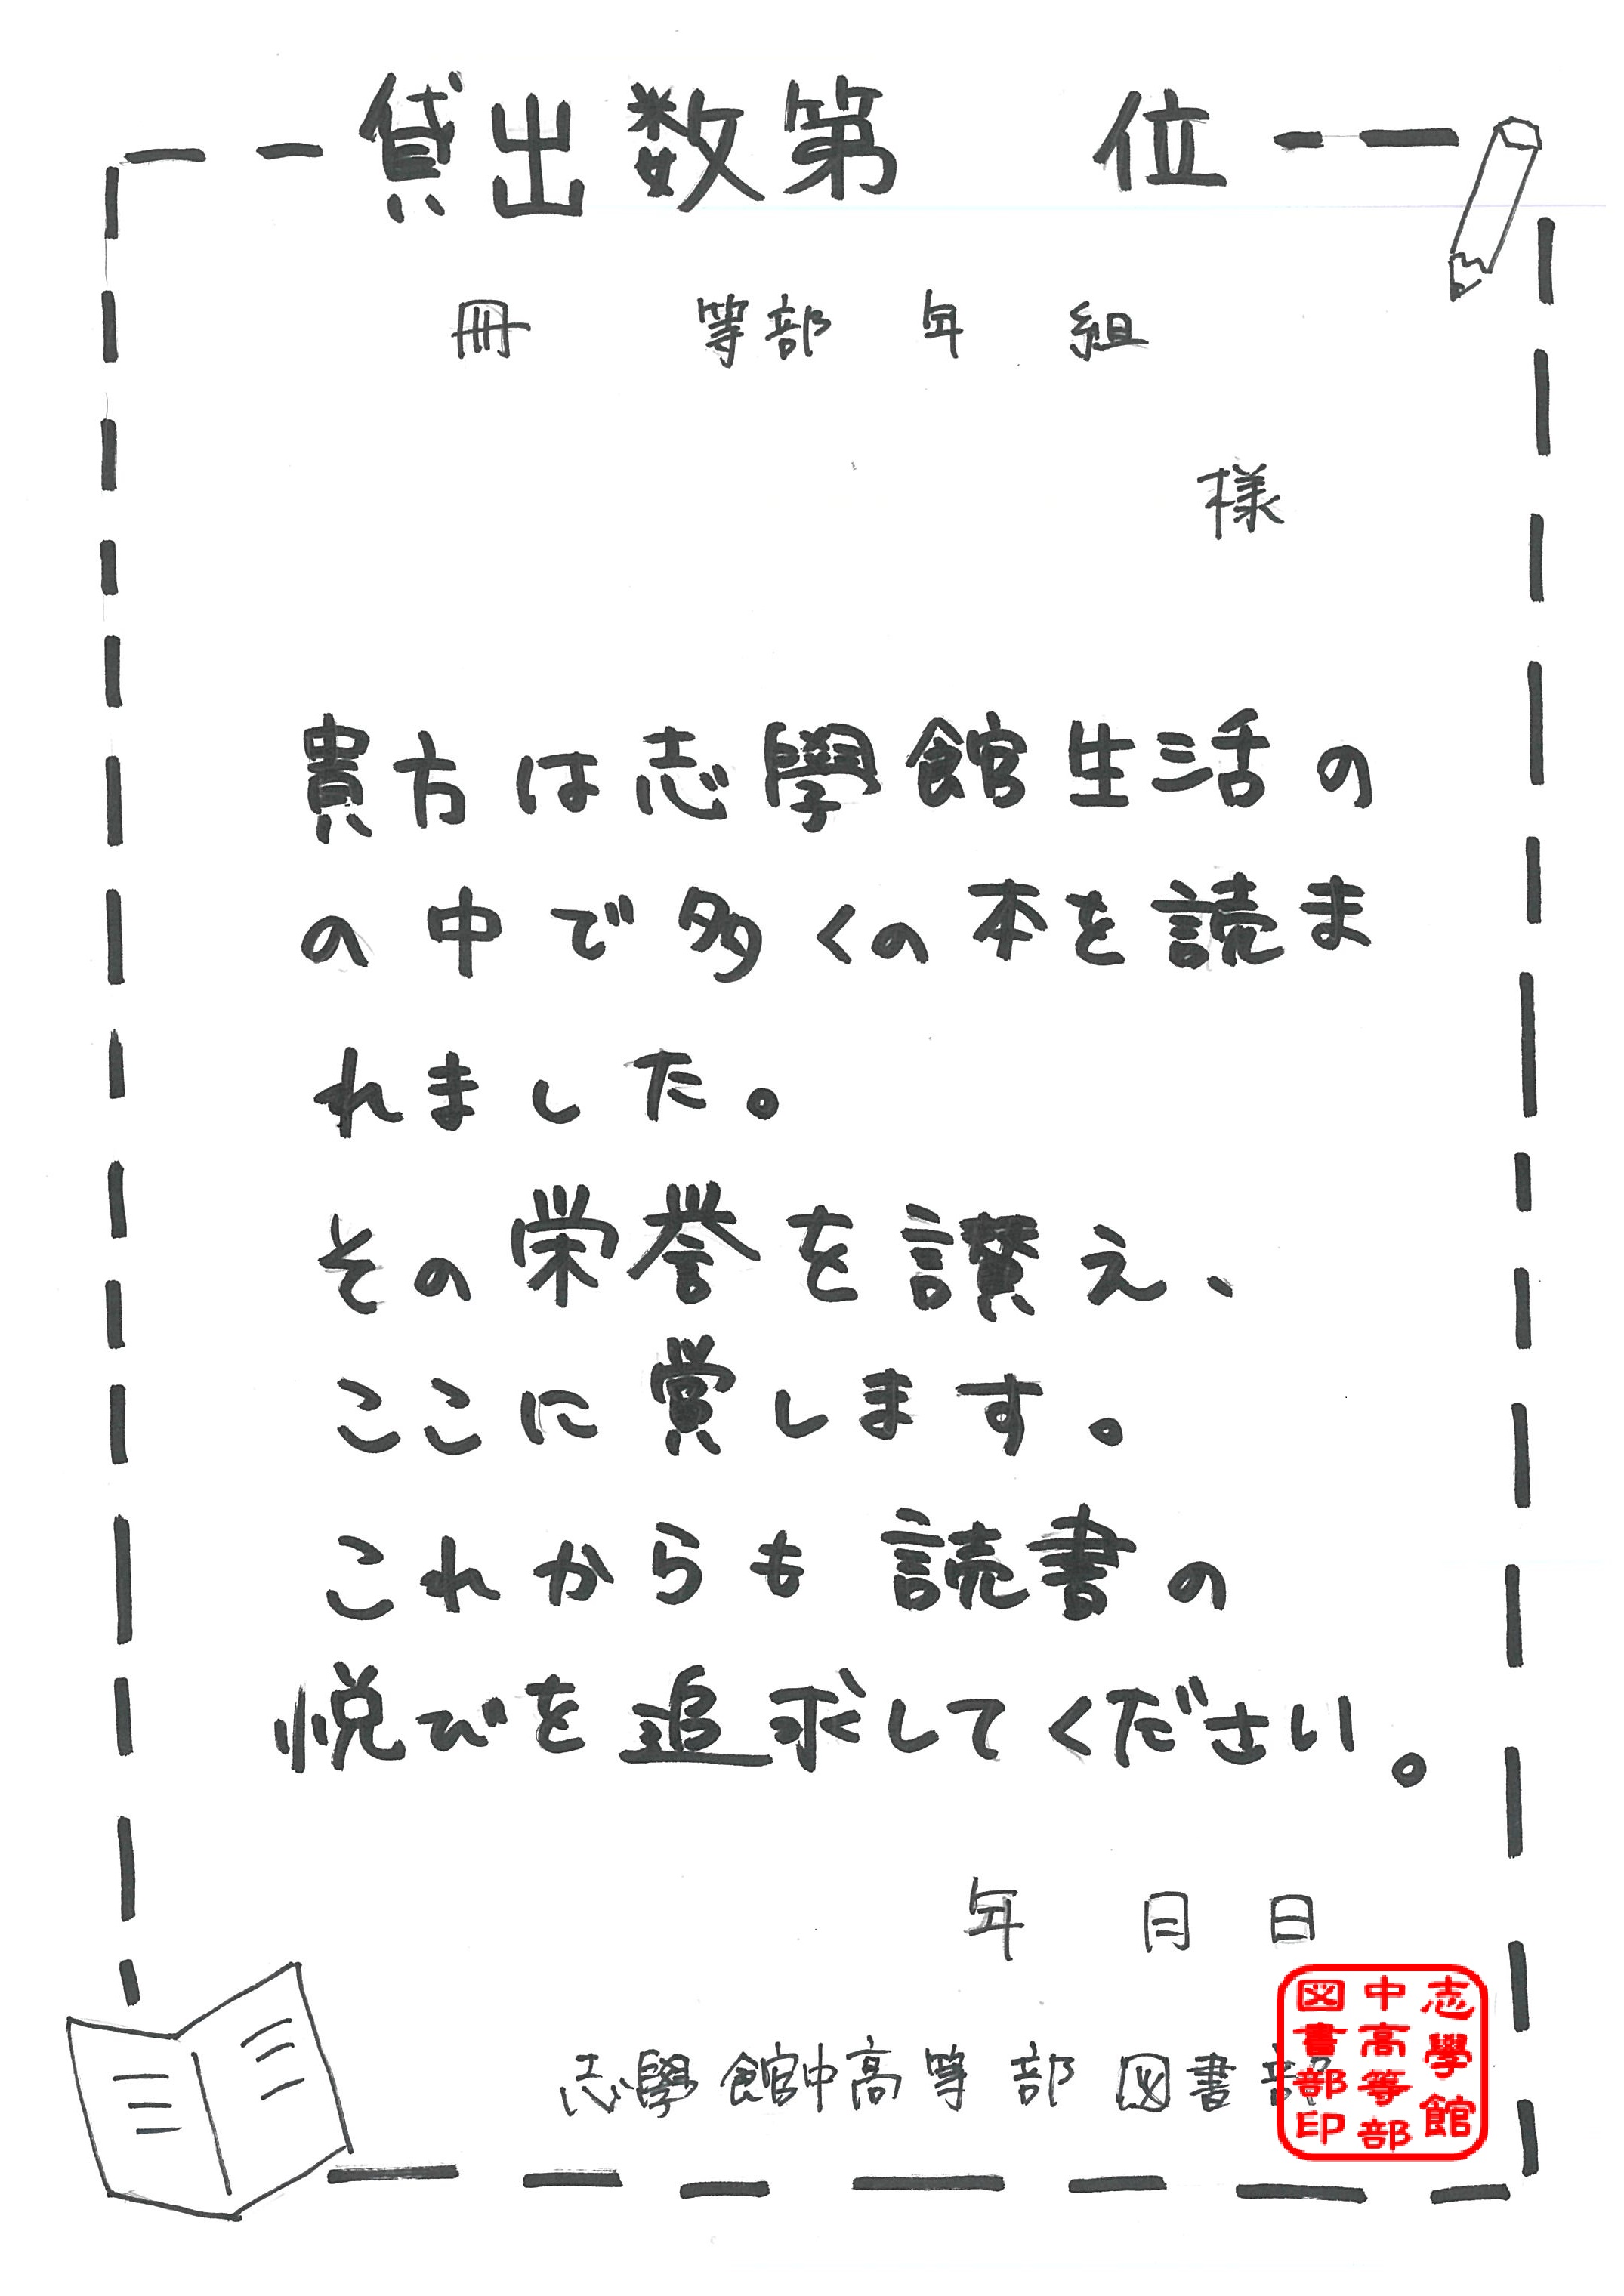 貸出数第　位
冊　等部 年 組
様
貴方は志學館生活の
の中で多くの本を読ま
れました。
その栄誉を讃え、
ここに賞します。
これからも読書の
悦びを追求してください。
年 月 日
志學館中高等部 図書部
志學館
中高等部
図書部印